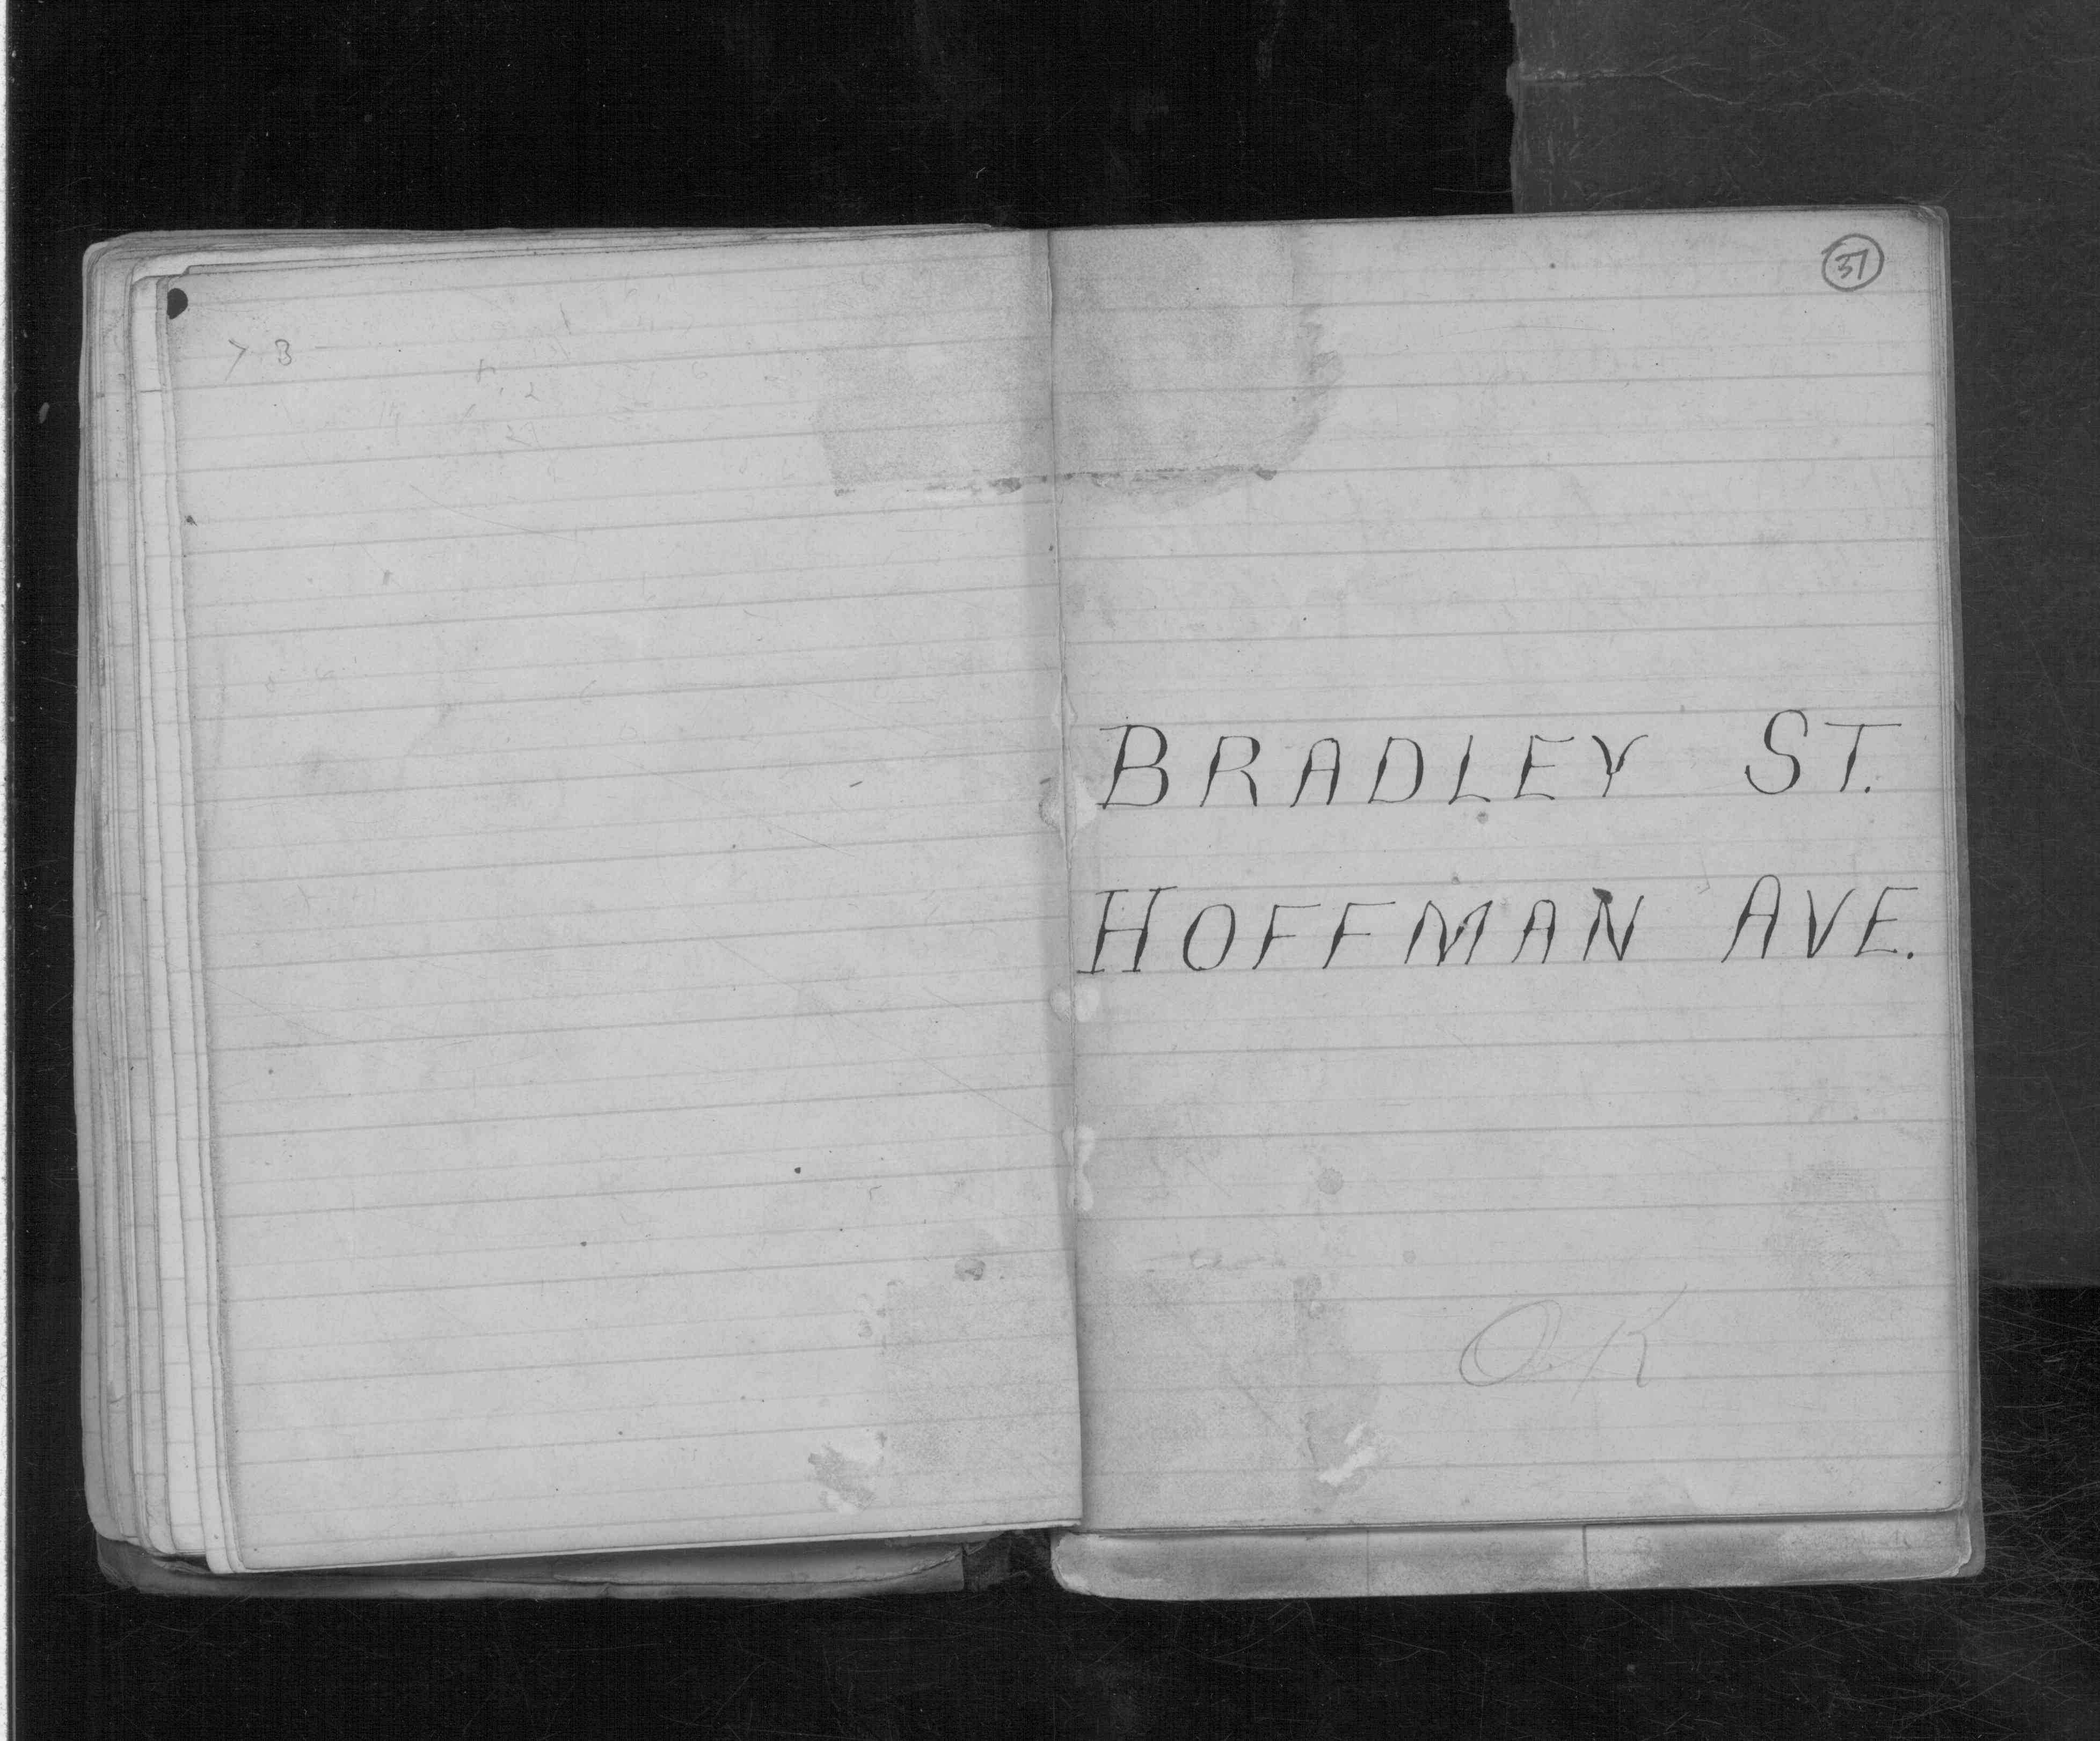 37
BRADLEY ST.
HOFFMAN AVE.
O.K